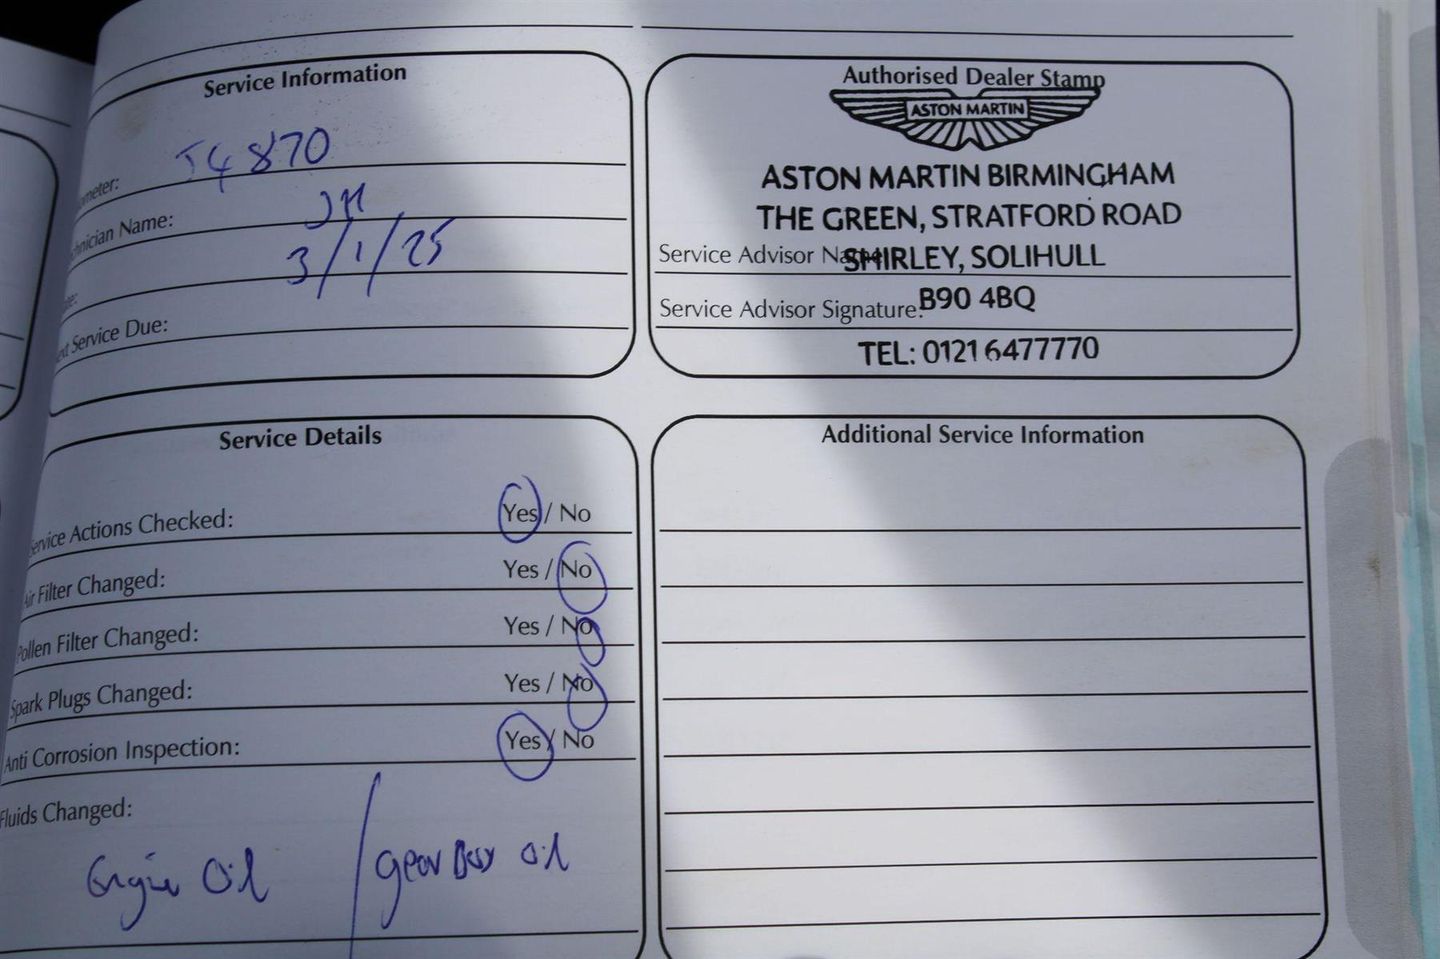 Service Information
ometer: 54870
chnician Name: JH
te: 3/1/25
ext Service Due:
Authorised Dealer Stamp
ASTON MARTIN
ASTON MARTIN BIRMINGHAM
THE GREEN, STRATFORD ROAD
Service Advisor Name:
SHIRLEY, SOLIHULL
Service Advisor Signature:
B90 4BQ
TEL: 0121 6477770
Service Details
Service Actions Checked: Yes / No
Air Filter Changed: Yes / No
Pollen Filter Changed: Yes / No
Spark Plugs Changed: Yes / No
Anti Corrosion Inspection: Yes / No
Fluids Changed:
Engine Oil / gear box oil
Additional Service Information